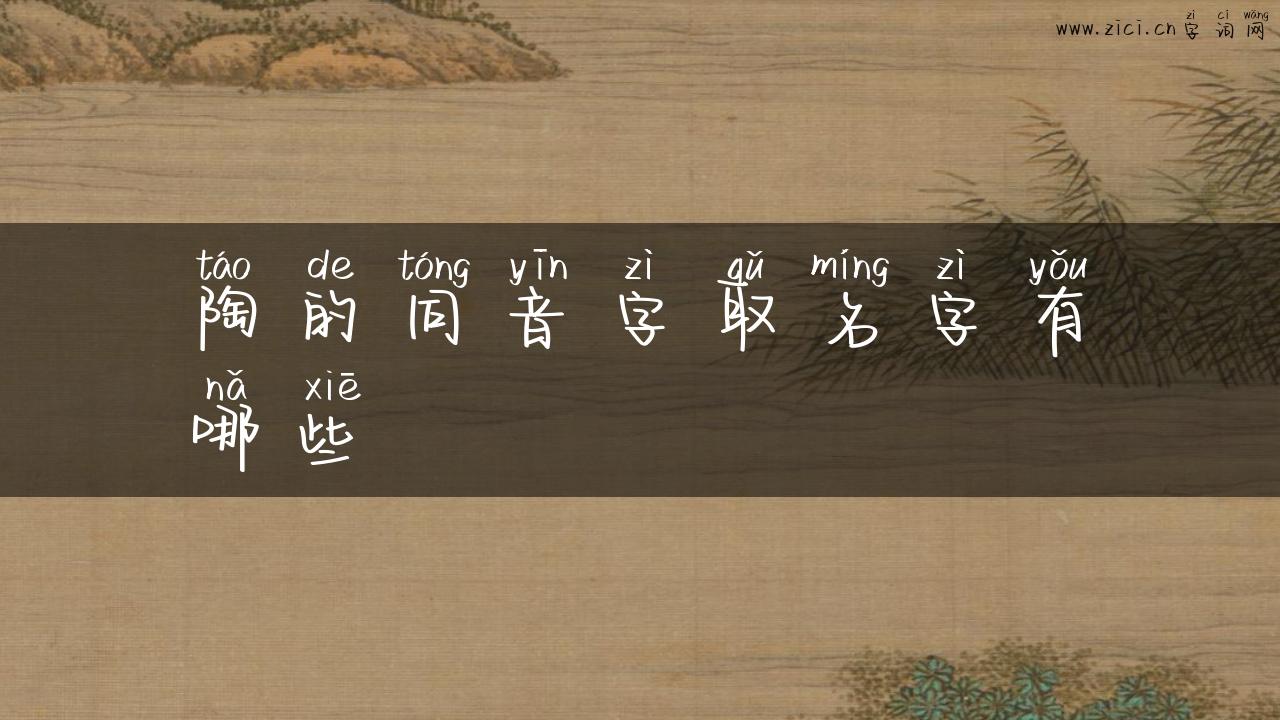 zì cí wǎng
www.zici.cn 字词网
táo de tóng yīn zì qǔ míng zì yǒu
陶的同音字取名字有
nǎ xiē
哪些